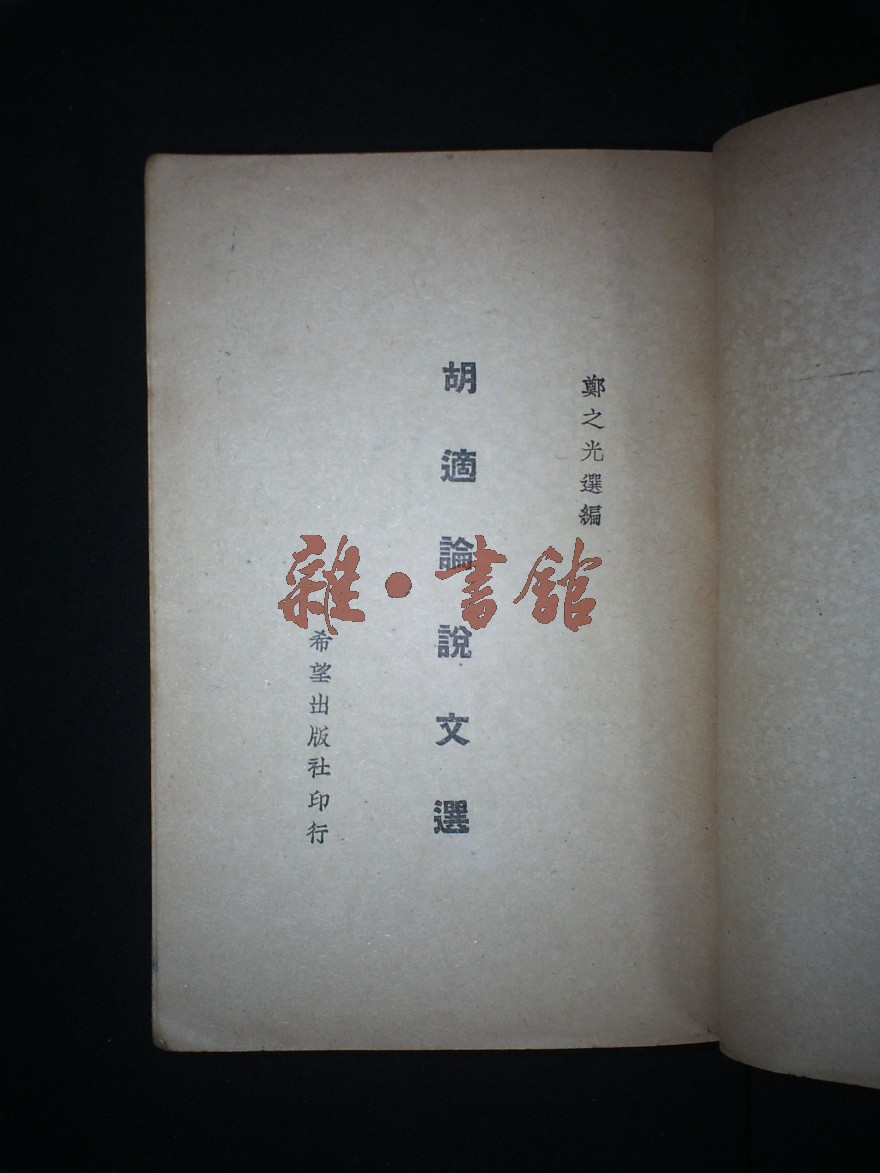 鄭之光選編
胡適論說文選
希望出版社印行
雜·書館